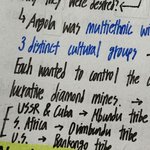 they were desired?
↳ Angola was multiethnic wi
3 distinct cultural groups
Each wanted to control the
lucrative diamond mines. →
[ USSR & Cuba → Mbundu tribe
S. Africa → Ovimbundu tribe
U.S. → Bankongo tribe